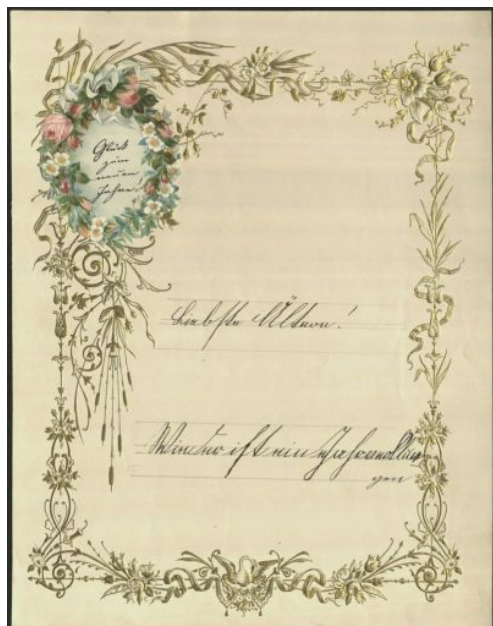 Glück
zum
neuen
Jahre.
Liebste Ältern!
Wieder ist ein Jahr vollzo
gen